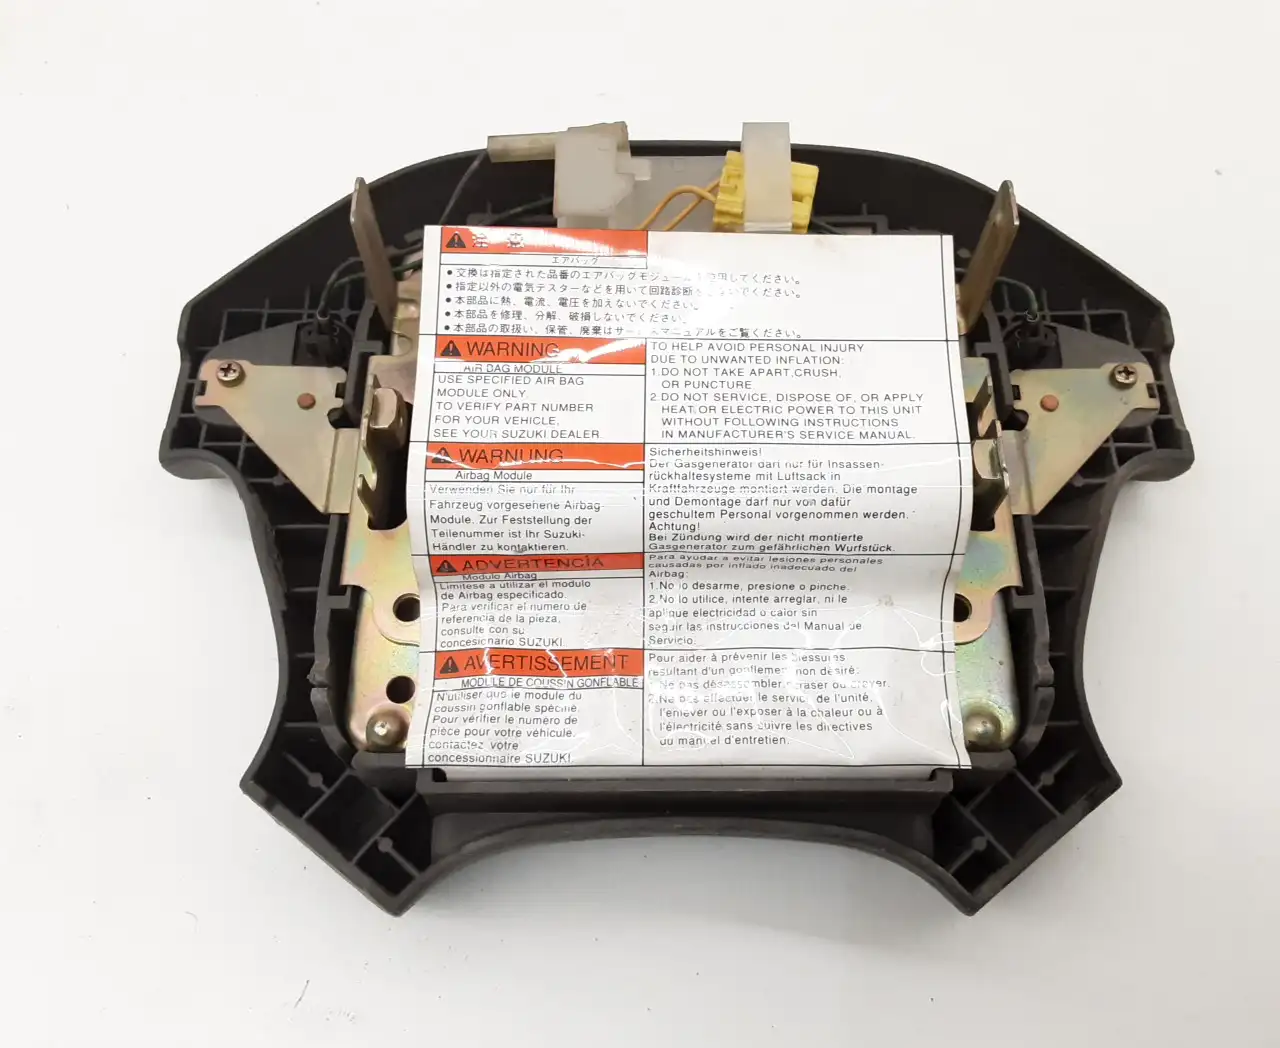 注 意
エアバッグ
•交換は指定された品番のエアバッグモジュールを使用してください。
•指定以外の電気テスターなどを用いて回路診断をしないでください。
•本部品に熱、電流、電圧を加えないでください。
•本部品を修理、分解、破損しないでください。
•本部品の取扱い、保管、廃棄はサービスマニュアルをご覧ください。
WARNING
AIR BAG MODULE
USE SPECIFIED AIR BAG
MODULE ONLY.
TO VERIFY PART NUMBER
FOR YOUR VEHICLE,
SEE YOUR SUZUKI DEALER.
TO HELP AVOID PERSONAL INJURY
DUE TO UNWANTED INFLATION:
1.DO NOT TAKE APART,CRUSH,
OR PUNCTURE
2.DO NOT SERVICE, DISPOSE OF, OR APPLY
HEAT OR ELECTRIC POWER TO THIS UNIT
WITHOUT FOLLOWING INSTRUCTIONS
IN MANUFACTURER'S SERVICE MANUAL.
WARNUNG
Airbag Module
Verwenden Sie nur für Ihr
Fahrzeug vorgesehene Airbag-
Module. Zur Feststellung der
Teilenummer ist Ihr Suzuki-
Händler zu kontaktieren.
Sicherheitshinweis!
Der Gasgenerator darf nur für Insassen-
rückhaltesysteme mit Luftsack in
Kraftfahrzeuge montiert werden. Die montage
und Demontage darf nur von dafür
geschultem Personal vorgenommen werden.
Achtung!
Bei Zündung wird der nicht montierte
Gasgenerator zum gefährlichen Wurfstück.
ADVERTENCIA
Modulo Airbag
Limitese a utilizar el modulo
de Airbag especificado.
Para verificar el numero de
referencia de la pieza,
consulte con su
concesionario SUZUKI.
Para ayudar a evitar lesiones personales
causadas por inflado inadecuado del
Airbag:
1.No lo desarme, presione o pinche.
2.No lo utilice, intente arreglar, ni le
aplique electricidad o calor sin
seguir las instrucciones del Manual de
Servicio.
AVERTISSEMENT
MODULE DE COUSSIN GONFLABLE
N'utiliser que le module du
coussin gonflable spécifié.
Pour vérifier le numéro de
pièce pour votre véhicule,
contactez votre
concessionnaire SUZUKI.
Pour aider à prévenir les blessures
résultant d'un gonflement non désiré:
1.Ne pas désassembler, écraser ou crever.
2.Ne pas effectuer le service de l'unité,
l'enlever ou l'exposer à la chaleur ou à
l'électricité sans suivre les directives
du manuel d'entretien.